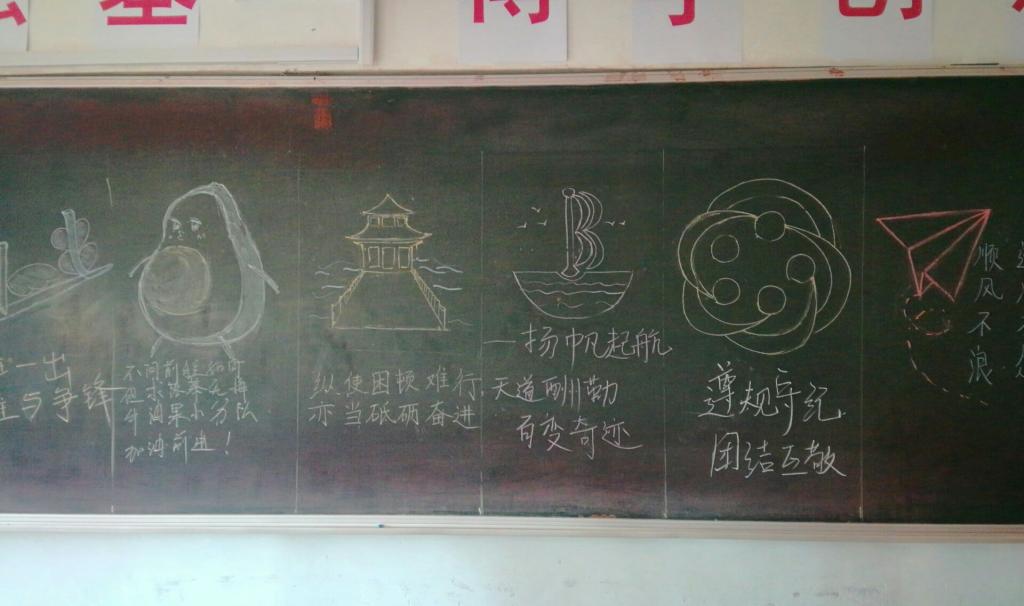 基 博学创
一出
与争锋
不问前程如何
但求落幕无悔
牛油果小方队
加油前进！
纵使困顿难行
亦当砥砺奋进
一扬帆起航
天道酬勤
百变奇迹
遵规守纪
团结互敬
顺风不浪